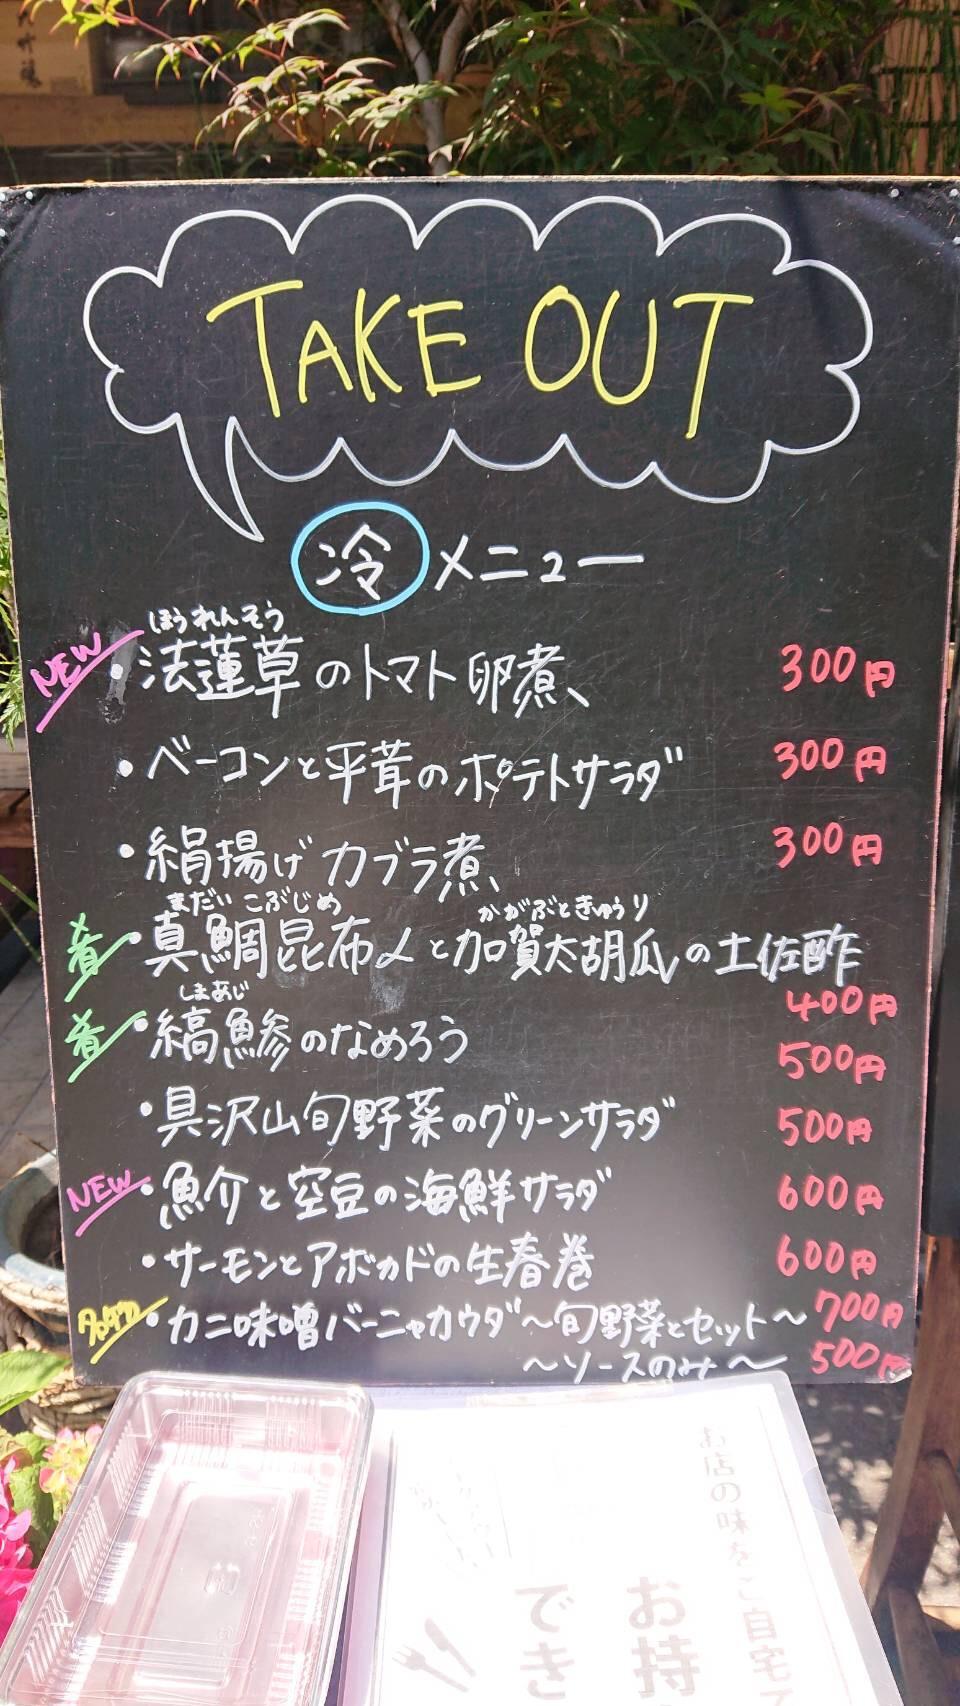 TAKE OUT
冷メニュー
ほうれんそう
NEW ・法蓮草のトマト卵煮、 300円
・ベーコンと平茸のポテトサラダ 300円
・絹揚げカブラ煮、 300円
まだい こぶじめ かがぶときゅうり
肴 ・真鯛昆布〆と加賀太胡瓜の土佐酢
400円
しまあじ
肴 ・縞鯵のなめろう 500円
・具沢山旬野菜のグリーンサラダ 500円
NEW ・魚介と空豆の海鮮サラダ 600円
・サーモンとアボカドの生春巻 600円
・カニ味噌バーニャカウダ～旬野菜とセット～ 700円
～ソースのみ～ 500円
お店の味をご自宅で
お持
でき